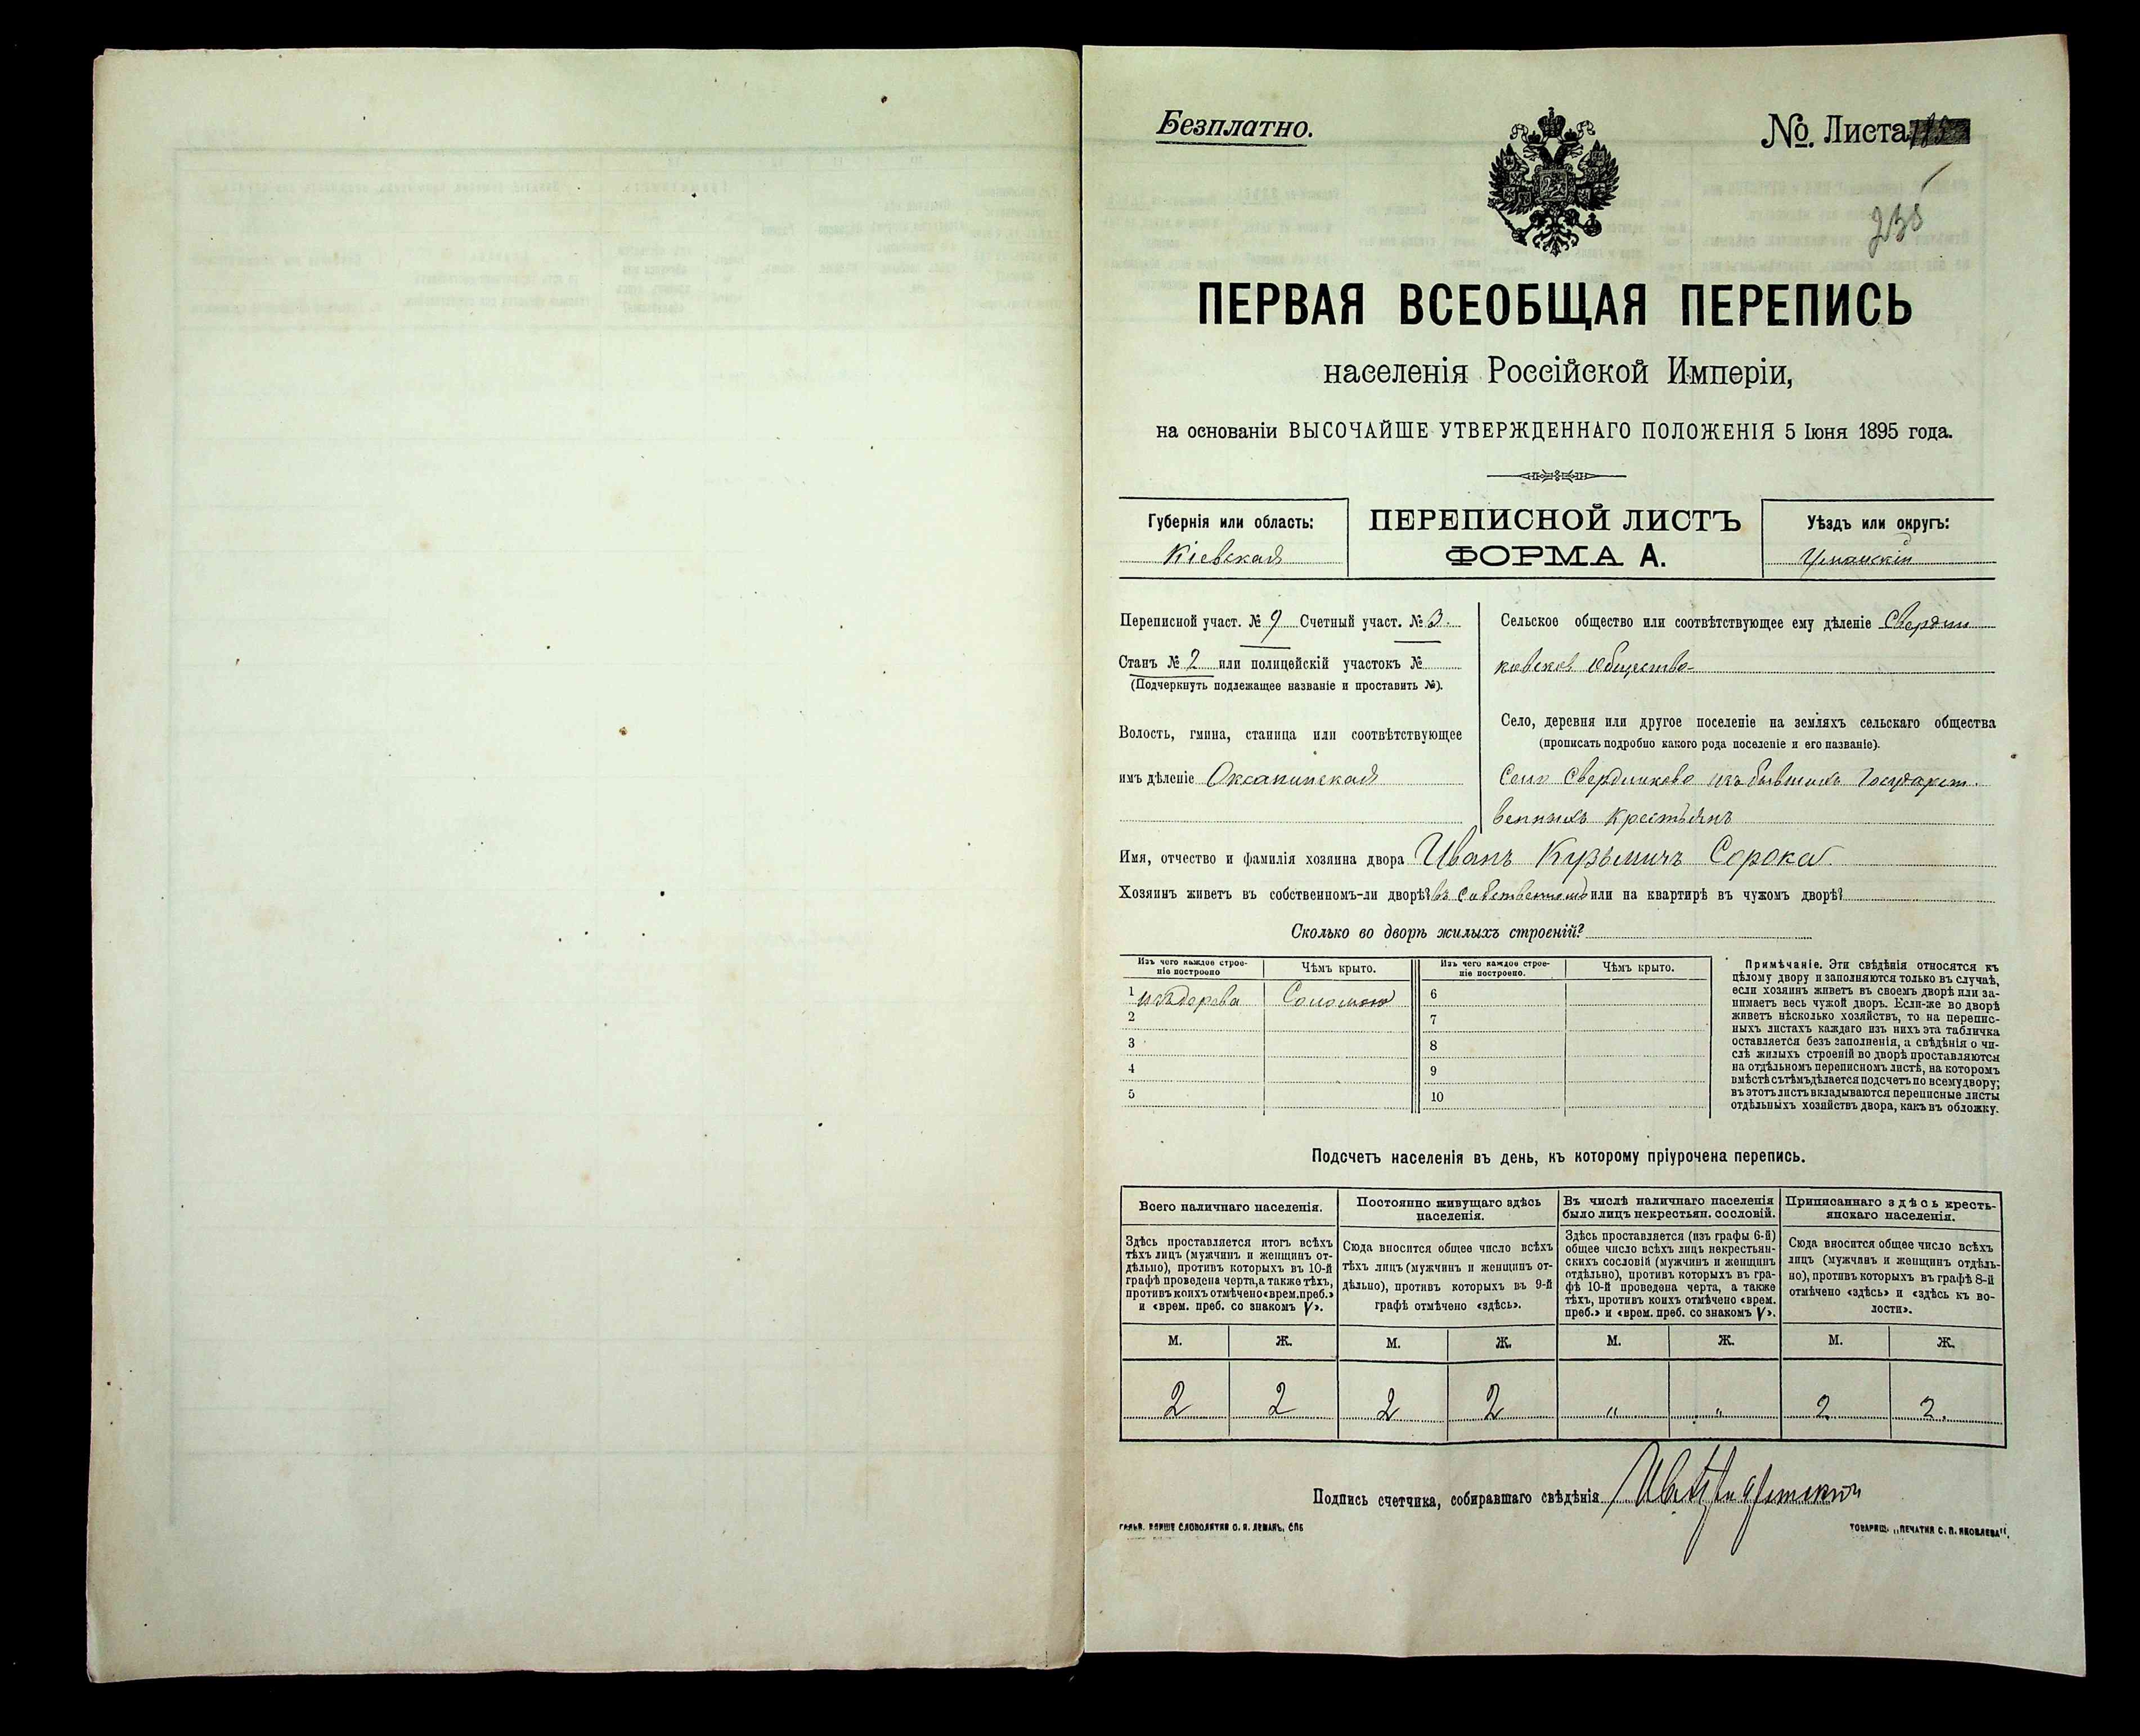 Безплатно.
№. Листа
235
ПЕРВАЯ ВСЕОБЩАЯ ПЕРЕПИСЬ
населенія Россійской Имперіи,
на основаніи ВЫСОЧАЙШЕ УТВЕРЖДЕННАГО ПОЛОЖЕНІЯ 5 Іюня 1895 года.
Губернія или область:
Кіевская
ПЕРЕПИСНОЙ ЛИСТЪ
ФОРМА А.
Уѣздъ или округъ:
Уманскій
Переписной участ. № 9 Счетный участ. № 3.
Станъ № 2 или полицейскій участокъ №
(Подчеркнуть подлежащее названіе и проставить №).
Волость, гмина, станица или соотвѣтствующее
имъ дѣленіе Оксанинская
Сельское общество или соотвѣтствующее ему дѣленіе Свердли
ковское общество
Село, деревня или другое поселеніе на земляхъ сельскаго общества
(прописать подробно какого рода поселеніе и его названіе).
Село Свердликово изъ бывшихъ Государст.
венныхъ крестьянъ
Имя, отчество и фамилія хозяина двора Иванъ Кузьмичъ Сорока
Хозяинъ живетъ въ собственномъ-ли дворѣ? въ собственномъ или на квартирѣ въ чужомъ дворѣ?
Сколько во дворѣ жилыхъ строеній?
Изъ чего каждое строе-
ніе построено
Чѣмъ крыто.
Изъ чего каждое строе-
ніе построено.
Чѣмъ крыто.
1 изъ дерева Соломою 6
2 7
3 8
4 9
5 10
Примѣчаніе. Эти свѣдѣнія относятся къ
цѣлому двору и заполняются только въ случаѣ,
если хозяинъ живетъ въ своемъ дворѣ или за-
нимаетъ весь чужой дворъ. Если-же во дворѣ
живетъ нѣсколько хозяйствъ, то на перепис-
ныхъ листахъ каждаго изъ нихъ эта табличка
оставляется безъ заполненія, а свѣдѣнія о чи-
слѣ жилыхъ строеній во дворѣ проставляются
на отдѣльномъ переписномъ листѣ, на которомъ
вмѣстѣ съ тѣмъ дѣлается подсчетъ по всему двору;
въ этотъ листъ вкладываются переписные листы
отдѣльныхъ хозяйствъ двора, какъ въ обложку.
Подсчетъ населенія въ день, къ которому пріурочена перепись.
Всего наличнаго населенія.
Здѣсь проставляется итогъ всѣхъ
тѣхъ лицъ (мужчинъ и женщинъ от-
дѣльно), противъ которыхъ въ 10-й
графѣ проведена черта, а также тѣхъ,
противъ коихъ отмѣчено «врем. преб.»
и «врем. преб. со знакомъ V».
Постоянно живущаго здѣсь
населенія.
Сюда вносится общее число всѣхъ
тѣхъ лицъ (мужчинъ и женщинъ от-
дѣльно), противъ которыхъ въ 9-й
графѣ отмѣчено «здѣсь».
Въ числѣ наличнаго населенія
было лицъ некрестьян. сословій.
Здѣсь проставляется (изъ графы 6-й)
общее число всѣхъ лицъ некрестьян-
скихъ сословій (мужчинъ и женщинъ
отдѣльно), противъ которыхъ въ гра-
фѣ 10-й проведена черта, а также
тѣхъ, противъ коихъ отмѣчено «врем.
преб.» и «врем. преб. со знакомъ V».
Приписаннаго здѣсь кресть-
янскаго населенія.
Сюда вносится общее число всѣхъ
лицъ (мужчинъ и женщинъ отдѣль-
но), противъ которыхъ въ графѣ 8-й
отмѣчено «здѣсь» и «здѣсь къ во-
лости».
М. Ж. М. Ж. М. Ж. М. Ж.
2 2 2 2 " " 2 2.
Подпись счетчика, собиравшаго свѣдѣнія
СЛОВОЛИТНЯ О. И. ЛЕМАНЪ, СПБ
ТОВАРИЩ. „ПЕЧАТНЯ С. П. ЯКОВЛЕВА“.